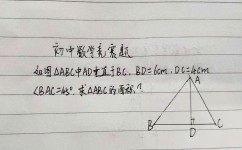 初中数学竞赛题
如图△ABC中AD垂直于BC, BD=6cm, DC=4cm
∠BAC=45°, 求△ABC的面积?
A
B
D
C